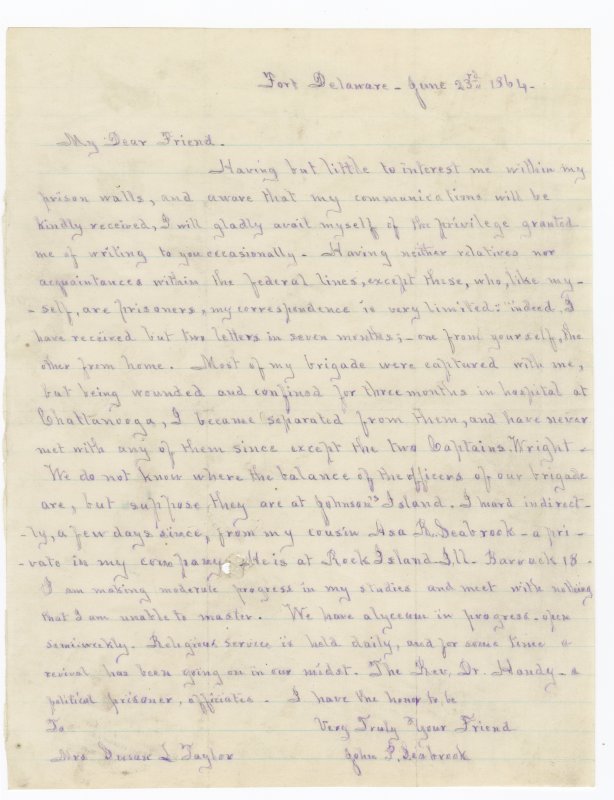 Fort Delaware - June 23rd 1864 -
My Dear Friend.
Having but little to interest me within my
prison walls, and aware that my communications will be
kindly received, I will gladly avail myself of the privilege granted
me of writing to you occasionally - Having neither relatives nor
acquaintances within the federal lines, except those, who, like my-
-self, are prisoners, my correspondence is very limited: indeed, I
have received but two letters in seven months; - one from yourself, the
other from home. Most of my brigade were captured with me,
but being wounded and confined for three months in hospital at
Chattanooga, I became separated from them, and have never
met with any of them since except the two Captains Wright -
We do not know where the balance of the officers of our brigade
are, but suppose they are at Johnson's Island. I heard indirect-
-ly, a few days since, from my cousin Asa R. Seabrook - a pri-
-vate in my company. He is at Rock Island Ill. Barrack 18 -
I am making moderate progress in my studies and meet with nothing
that I am unable to master. We have a lyceum in progress - open
semi-weekly. Religious service is held daily, and for some time a
revival has been going on in our midst. The Rev. Dr. Handy - a
political prisoner, officiates - I have the honor to be
To Very Truly Your Friend
Mrs Susan L Taylor John P. Seabrook